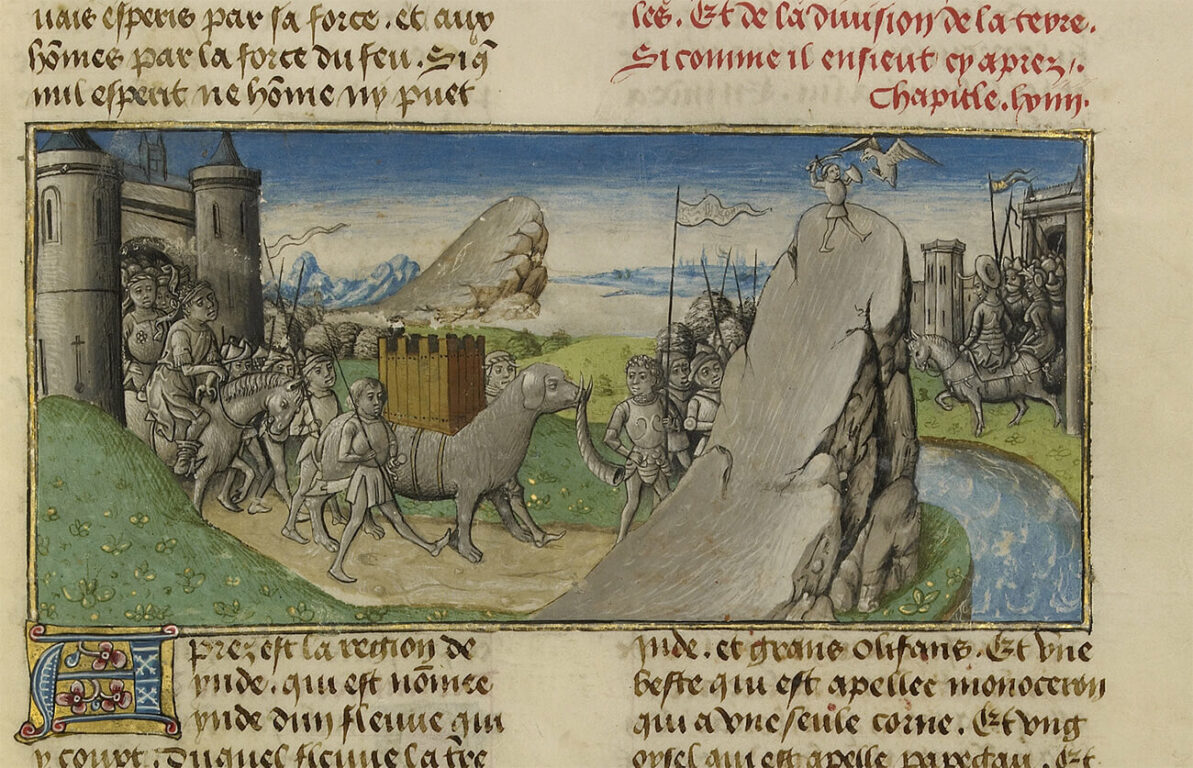 uais esperis par sa force. et aux
hõmes par la force du feu. Si q̃
nul esperit ne hõme ny puet
les. Et de la diuision de la terre.
Si comme il ensieut cy aprez.
Chapitle. lviii.
Aprez est la region de
ynde. qui est nõmee
ynde dun fleuue qui
y court. Duquel fleuue la tr̃e
Inde. et grans olifans. Et vne
beste qui est apellee monoceron
qui a vne seule corne. Et vng
oysel qui est apelle papegau. Et